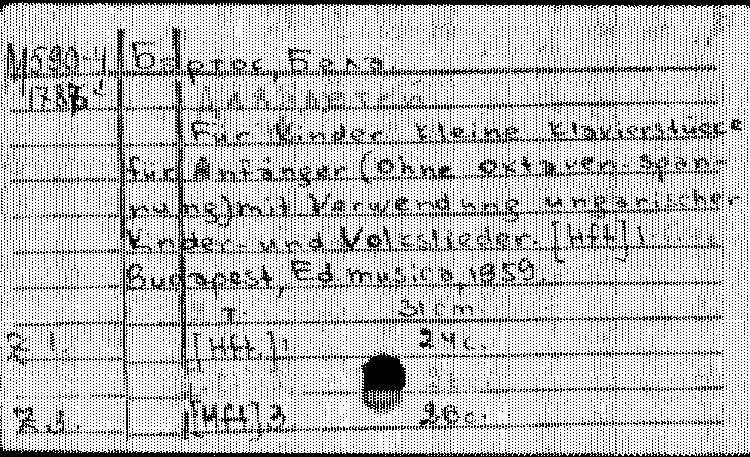 И590-4 Барток, Бела.
173Б
Für Kinder. Kleine Klavierstücke
für Anfänger (Ohne oxtaven-Span-
nung) mit Verwendung ungarischer
Kinder- und Volkslieder. [Hft] 1
Budapest, Ed musica, 1959.
т. 31 cm
[Hft.] 1 24 c.
[Hft] 3 20 c.